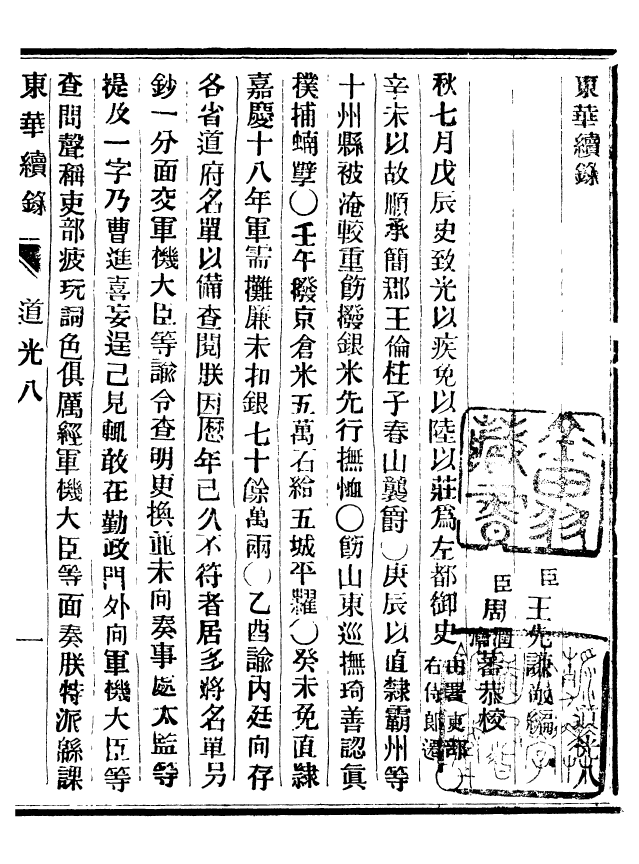 東華續錄　道光八
臣王先謙敬編
臣周潤蕃恭校
秋七月戊辰史致光以疾免以陸以莊爲左都御史由署吏部右侍郎遷○
辛未以故順承簡郡王倫柱子春山襲爵○庚辰以直隸霸州等
十州縣被淹較重飭撥銀米先行撫恤○飭山東巡撫琦善認眞
撲捕蝻孽○壬午撥京倉米五萬石給五城平糶○癸未免直隸
嘉慶十八年軍需攤廉未扣銀七十餘萬兩○乙酉諭內廷向存
各省道府名單以備查閱朕因歷年已久不符者居多將名單另
鈔一分面交軍機大臣等諭令查明更換並未向奏事處太監等
提及一字乃曹進喜妄逞己見輒敢在勤政門外向軍機大臣等
查問聲稱吏部疲玩詞色俱厲經軍機大臣等面奏朕特派緜課
東華續錄　道光八　一